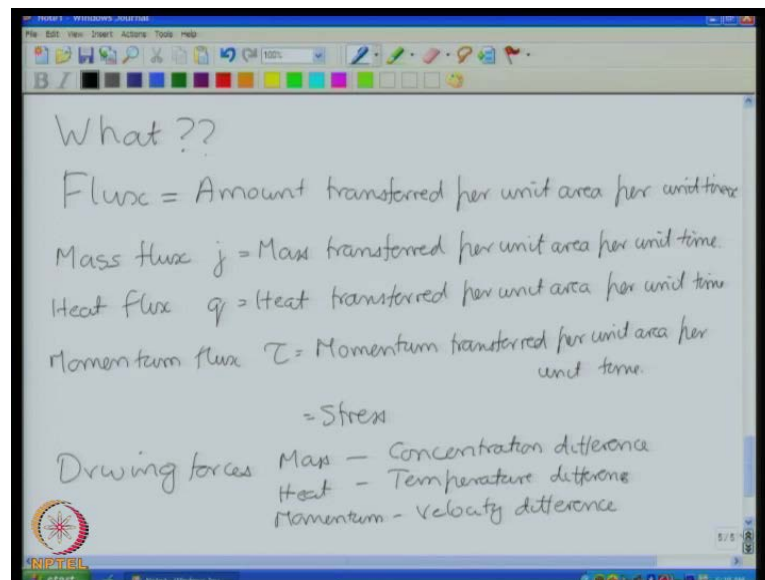 Note1 - Windows Journal
File Edit View Insert Actions Tools Help
100%
B I
What ??
Flux = Amount transferred per unit area per unit time
Mass flux j = Mass transferred per unit area per unit time.
Heat flux q = Heat transferred per unit area per unit time
Momentum flux τ = Momentum transferred per unit area per
unit time.
= Stress
Driving forces Mass — Concentration difference
Heat - Temperature difference
Momentum - Velocity difference
5/5
NPTEL
start